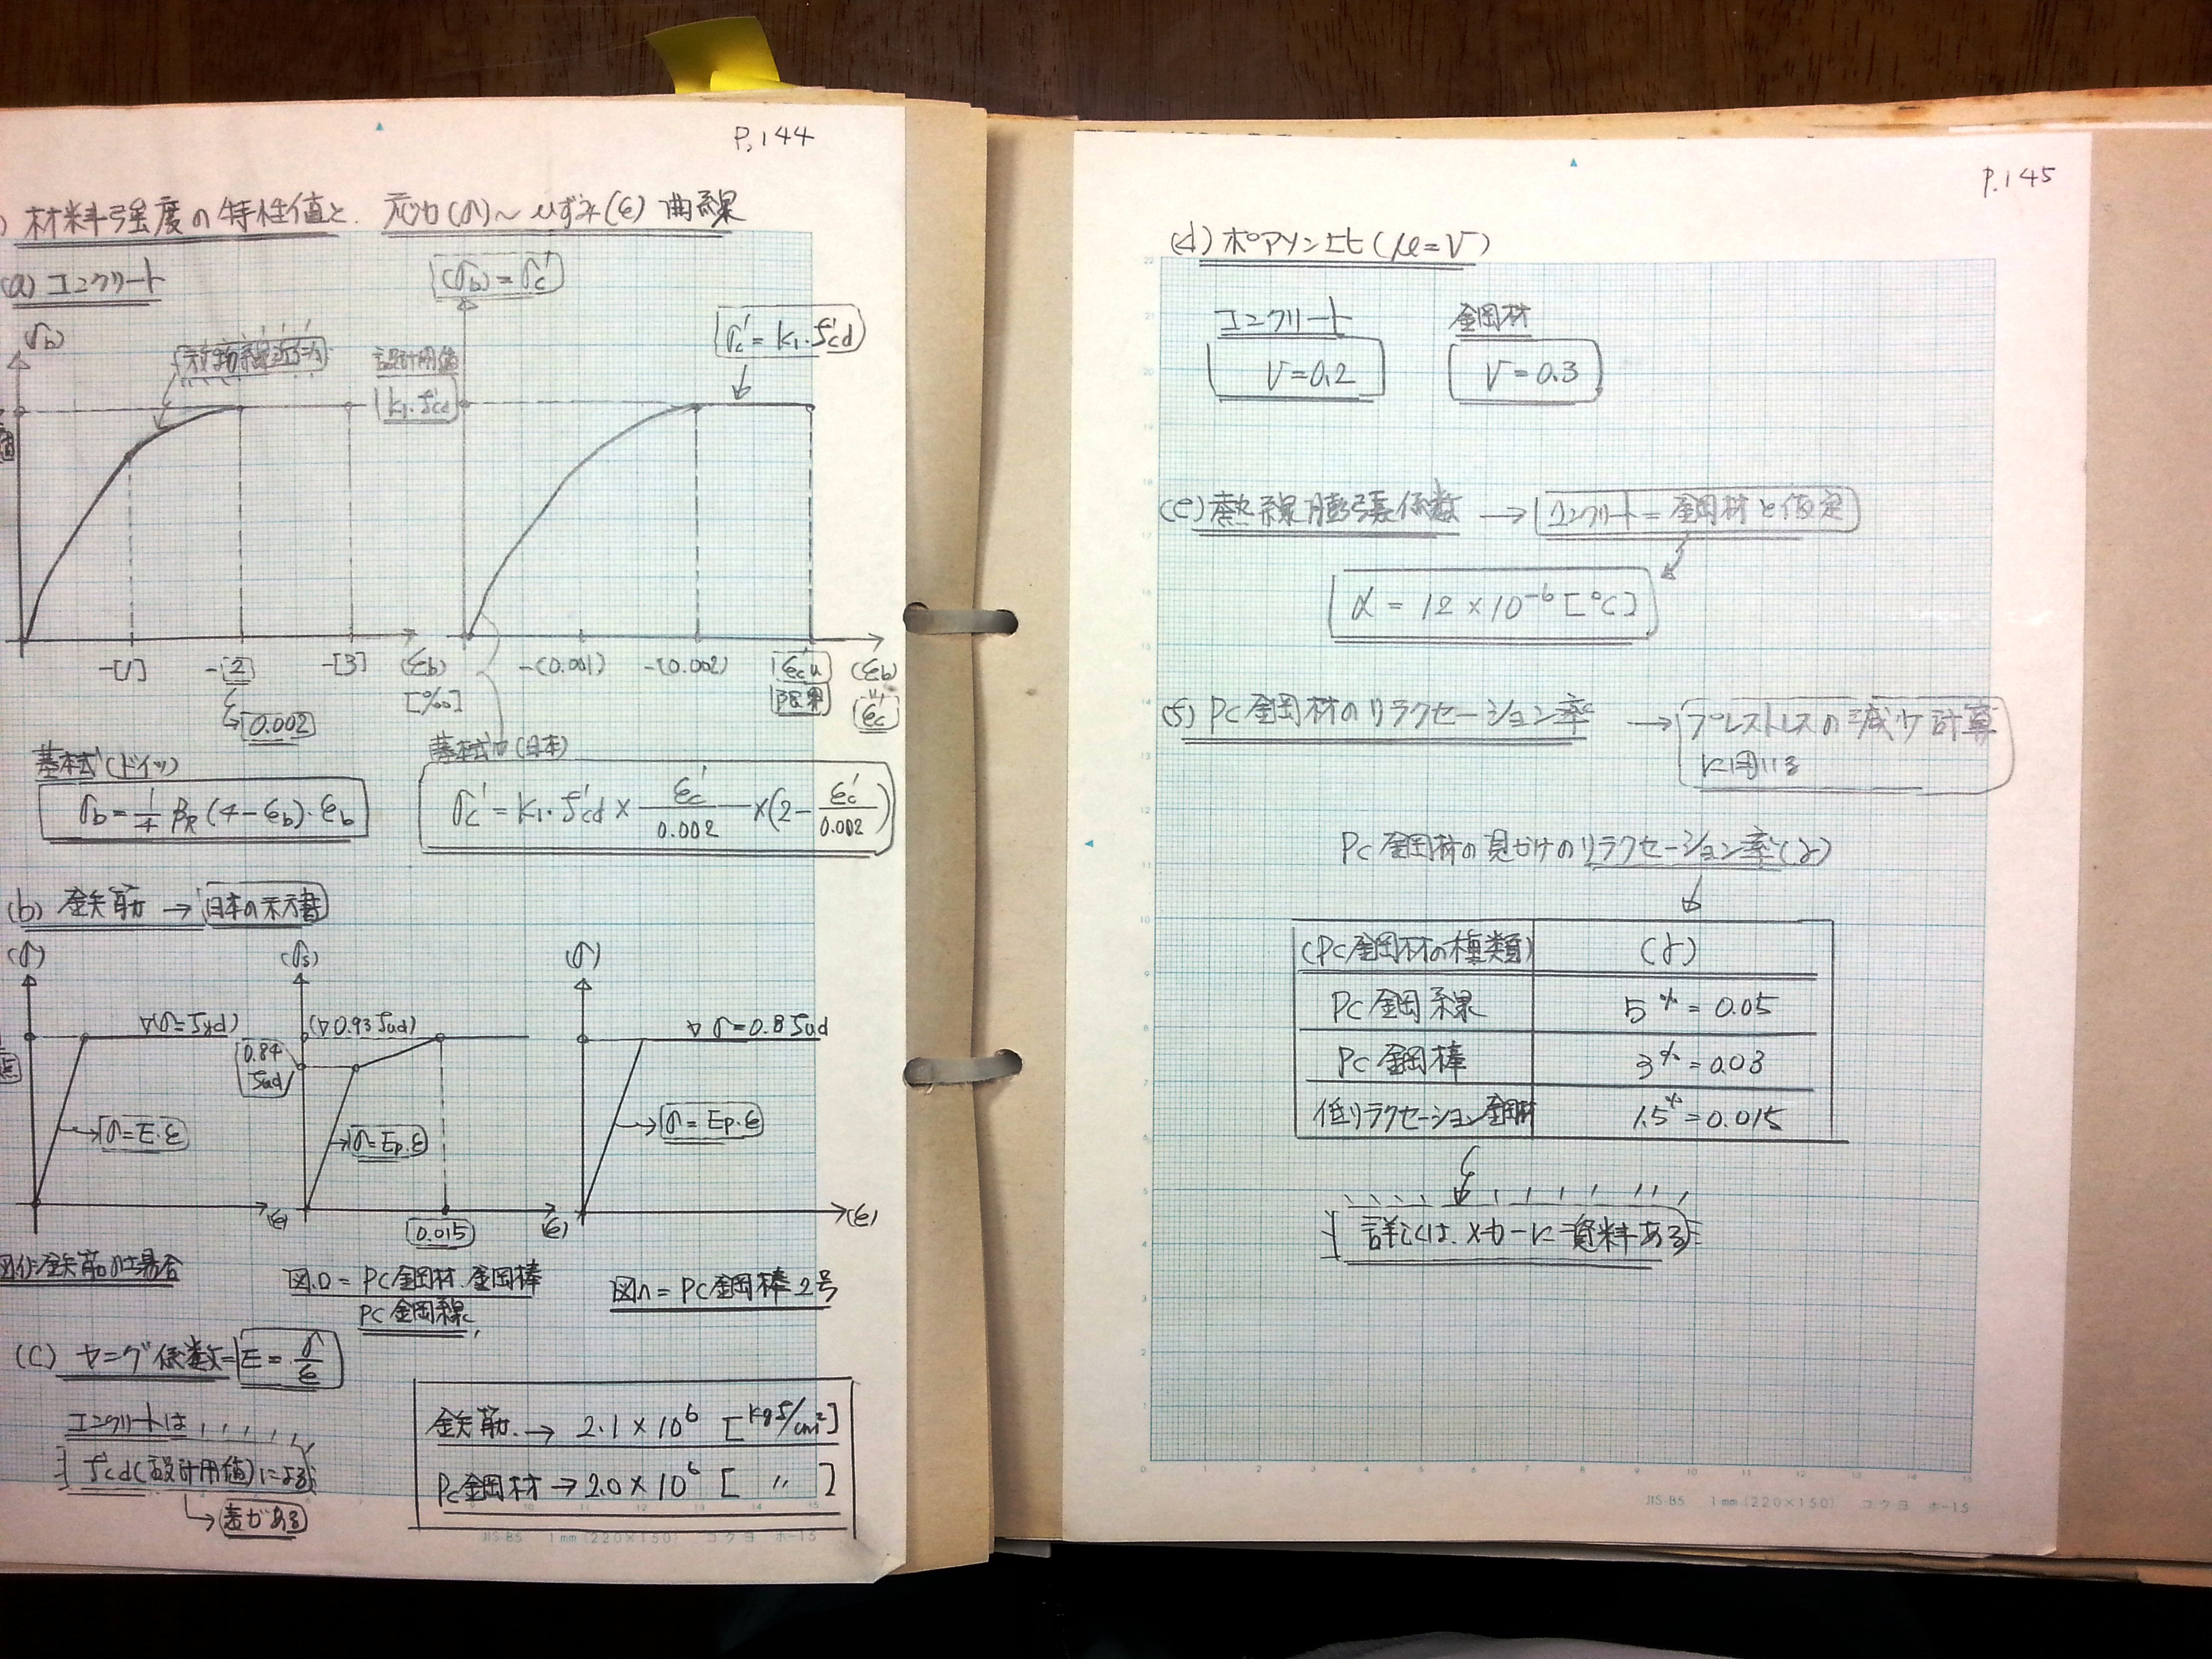 P.144
) 材料強度の特性値と. 応力(σ)〜ひずみ(ε)曲線
(a) コンクリート
(σb) = σc'
(σb)
放物線
設計用値
k1·f'cd
σc' = k1·f'cd
-[1]
-[2]
-[3]
(εb)
[‰]
0.002
-(0.001)
-(0.002)
ε'cu
限界
(εb)
ε'c
基本式(ドイツ)
σb = 1/4 βR (4-εb)·εb
基本式(日本)
σc' = k1·f'cd × εc'/0.002 × (2 - εc'/0.002)
(b) 鉄筋 → 日本の示方書
(σ)
(σs)
(σ)
▽(σ=fyd)
(▽0.93fud)
▽ σ=0.8fud
0.84
fud
σ=E·ε
σ=Ep·ε
σ=Ep·ε
(ε)
0.015
(ε)
(ε)
図イ)=鉄筋の場合
図ロ=PC鋼材.鋼棒
PC鋼線
図ハ=PC鋼棒2号
(C) ヤング係数=E=σ/ε
コンクリートは,,,,,
f'cd(設計用値)による
→表がある
鉄筋. → 2.1×10⁶ [kgf/cm²]
PC鋼材 → 2.0×10⁶ [ 〃 ]
JIS-B5 1mm(220×150) コクヨ ホ-15
P.145
(d) ポアソン比(μ=ν)
コンクリート
鋼材
ν=0.2
ν=0.3
(e) 熱線膨張係数 → コンクリート=鋼材と仮定
α = 12×10⁻⁶ [℃]
(f) PC鋼材のリラクセーション率 → プレストレスの減少計算
に用いる
PC鋼材の見かけのリラクセーション率(γ)
(PC鋼材の種類) (γ)
PC鋼線 5% = 0.05
PC鋼棒 3% = 0.03
低リラクセーション鋼材 1.5% = 0.015
詳しくは.メーカーに資料ある
JIS-B5 1mm(220×150) コクヨ ホ-15